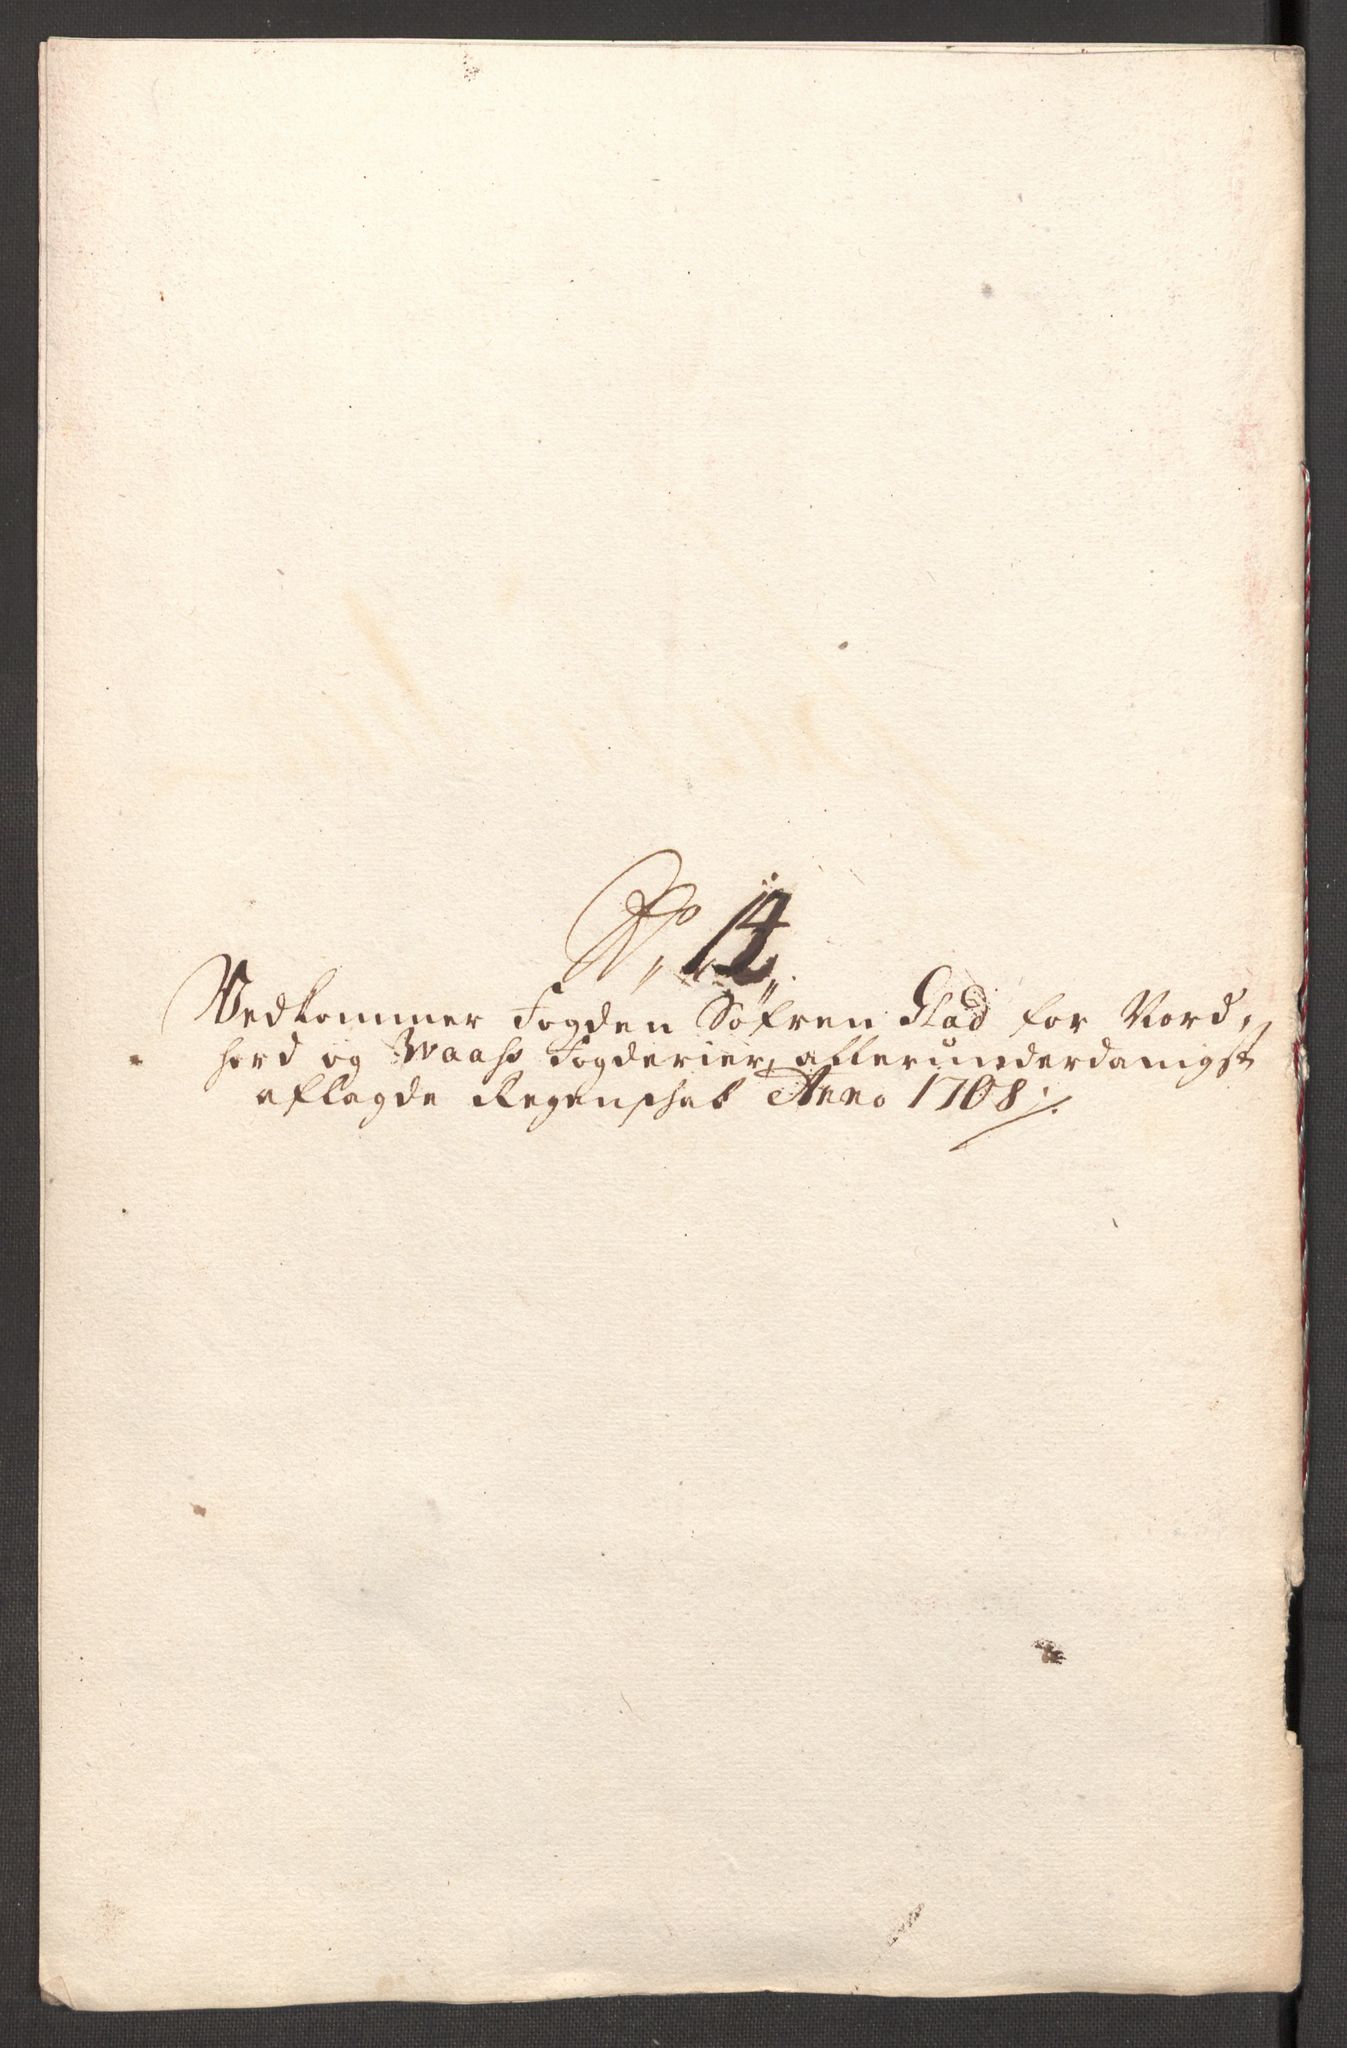 No. 14
Vedkommer Fogden Søfren Glad for Nord,
hord og Waahs Fogderier, allerunderdanigst
aflagde Regenschab Anno 1708 ./.